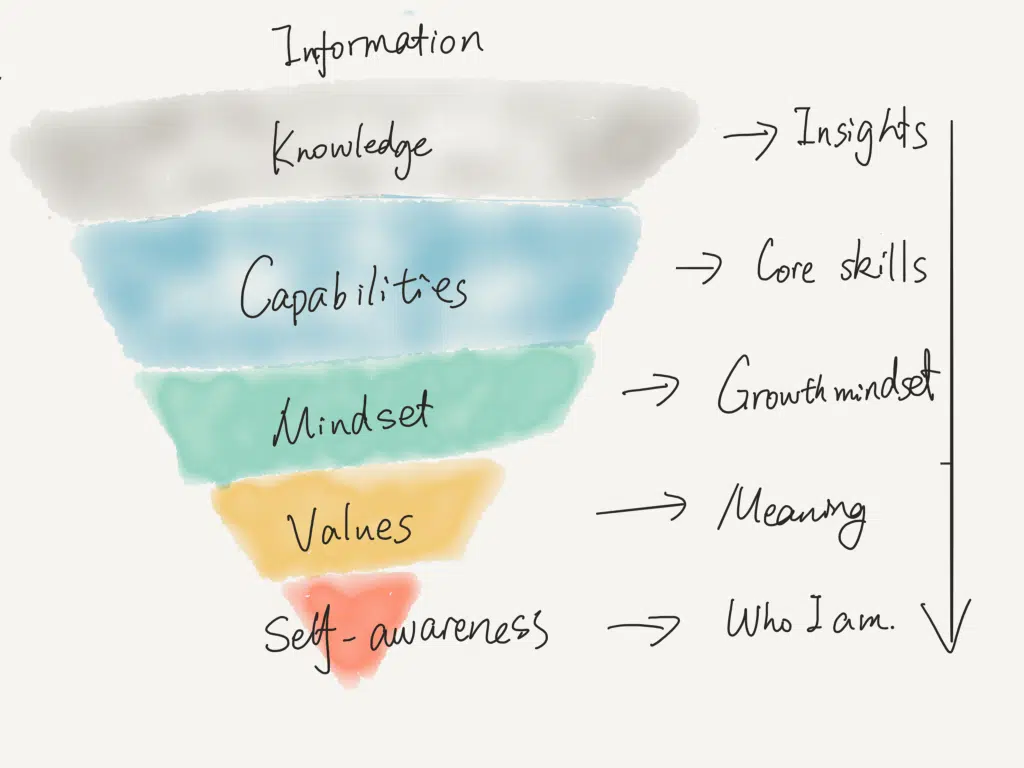 Information
Knowledge → Insights
Capabilities → Core skills
Mindset → Growth mindset
Values → Meaning
Self-awareness → Who I am.